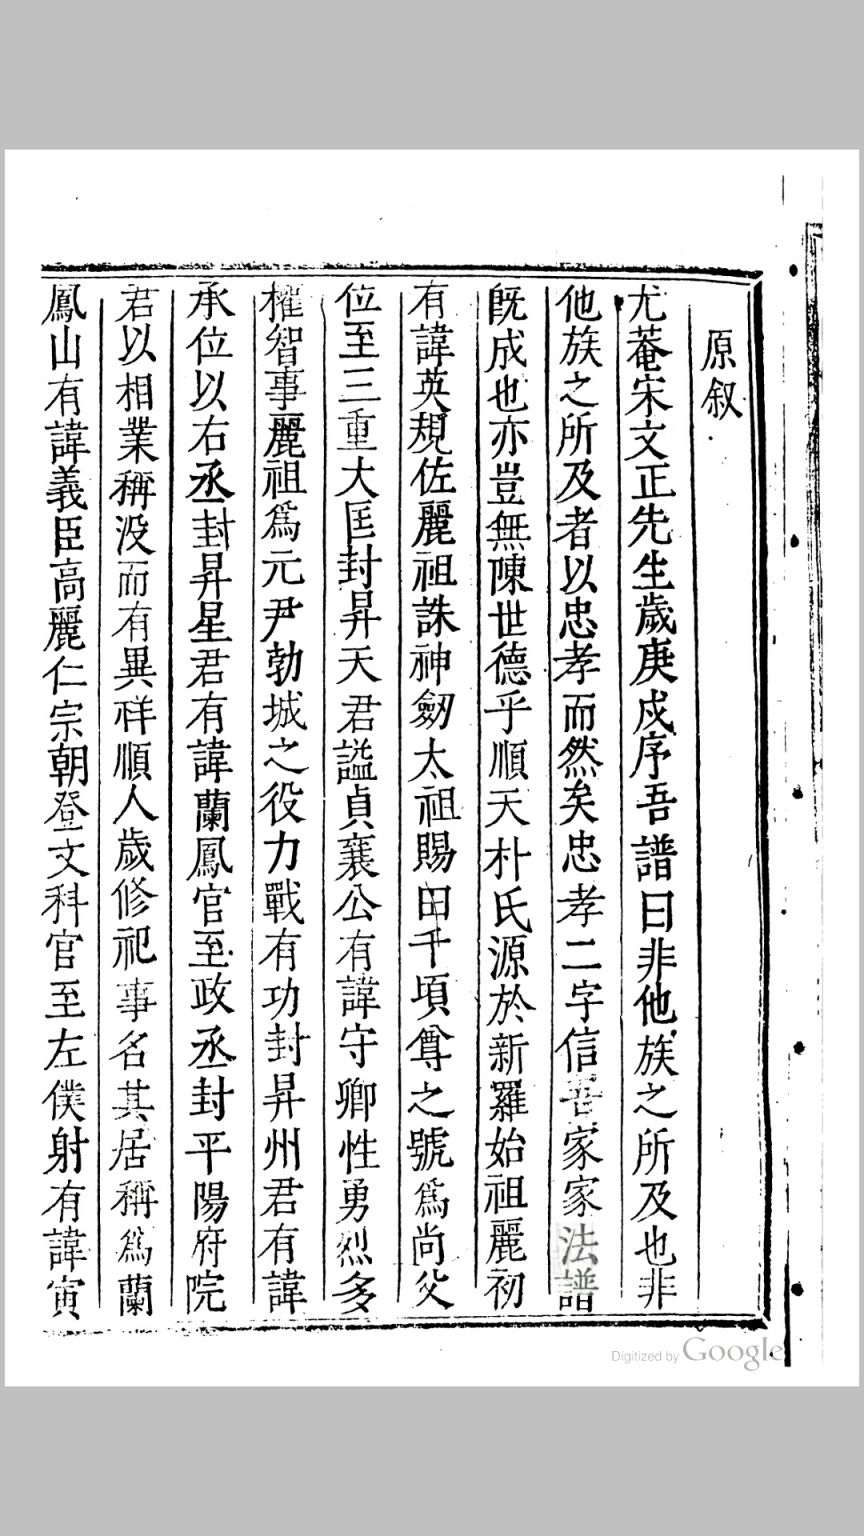 原叙
尤菴宋文正先生歲庚戌序吾譜曰非他族之所及也非
他族之所及者以忠孝而然矣忠孝二字信吾家家法譜
旣成也亦豈無陳世德乎順天朴氏源於新羅始祖麗初
有諱英規佐麗祖誅神劒太祖賜田千頃尊之號爲尚父
位至三重大匡封昇天君謚貞襄公有諱守卿性勇烈多
權智事麗祖爲元尹勃城之役力戰有功封昇州君有諱
承位以右丞封昇星君有諱蘭鳳官至政丞封平陽府院
君以相業稱没而有異祥順人歲修祀事名其居稱爲蘭
鳳山有諱義臣高麗仁宗朝登文科官至左僕射有諱寅
Digitized by Google